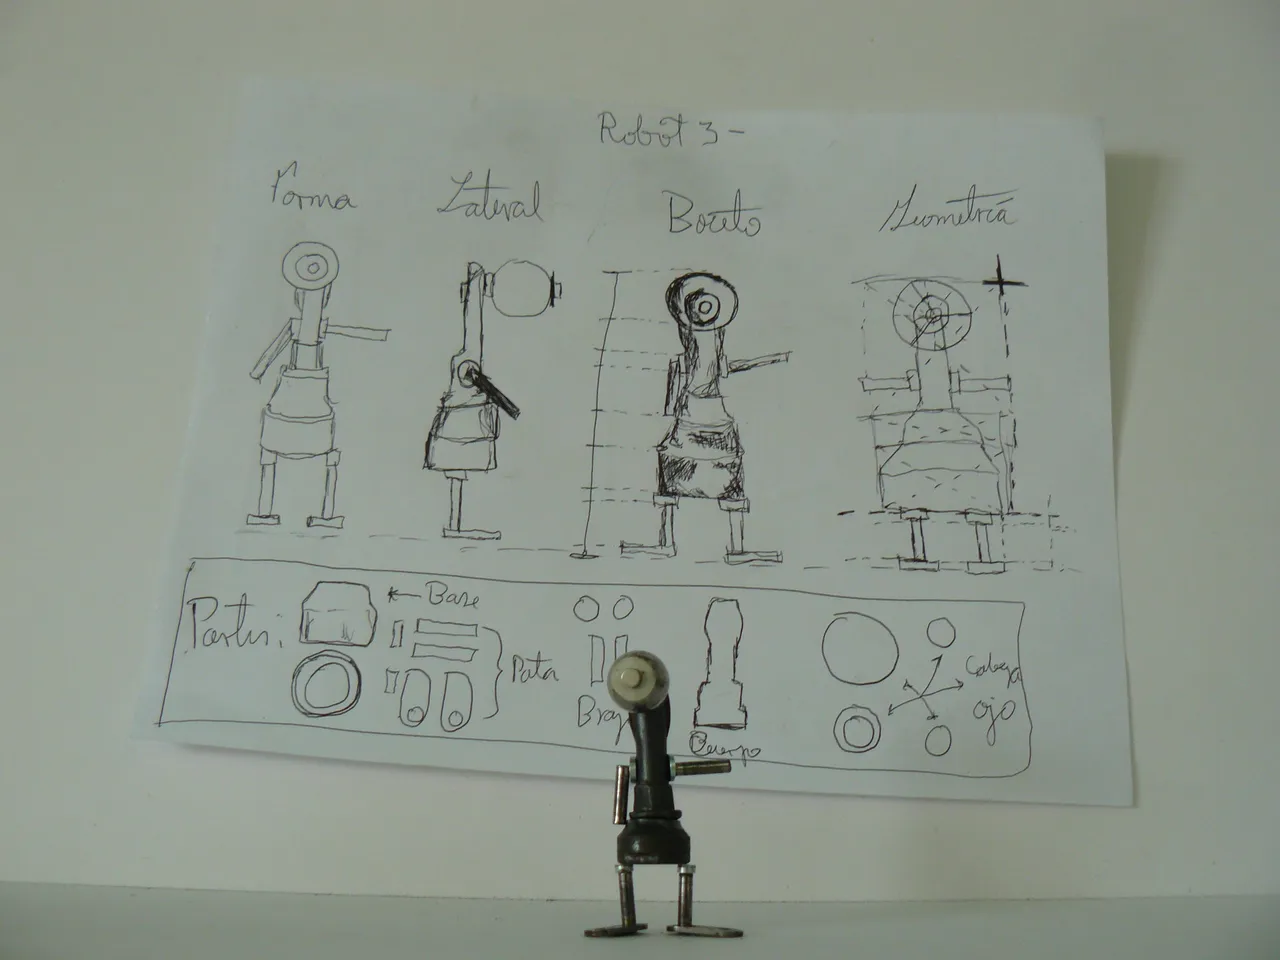 Robot 3-
Forma
Lateral
Boceto
Geometría
Partes:
Base
Pata
Cuerpo
Cabeza
ojo